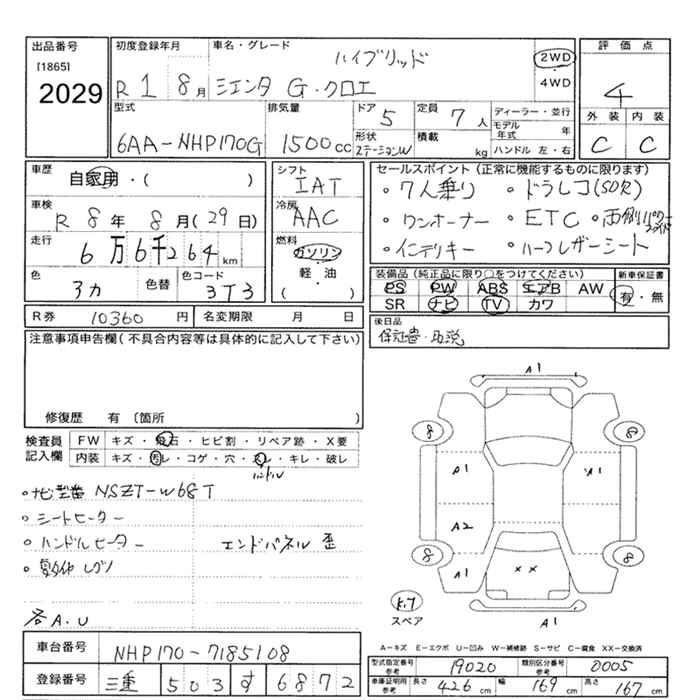 出品番号
[1865]
2029
初度登録年月
R 1 8 月
車名・グレード
ハイブリッド
シエンタ G・クロエ
2WD
4WD
評価点
4
外装 内装
C C
型式
6AA-NHP170G
排気量
1500 cc
ドア
5
形状
ステーションW
定員
7 人
積載
kg
ディーラー・並行
モデル年式 年
ハンドル 左・右
車歴
自家用・( )
車検
R 8 年 8 月 (29 日)
走行
6 万 6 千 264 km
色
アカ
色替
色コード
3T3
シフト
IAT
冷房
AAC
燃料
ガソリン
軽・油
( )
セールスポイント (正常に機能するものに限ります)
・7人乗り ・ドラレコ(SDR)
・ワンオーナー ・ETC ・両側パワースライド
・インテリキー ・ハーフレザーシート
装備品 (純正品に限り○をつけてください)
PS PW ABS エアB AW
SR ナビ TV カワ
新車保証書
有・無
R券 10360 円
名変期限 月 日
後日品
保証書・取説
注意事項申告欄 (不具合内容等は具体的に記入して下さい)
修復歴 有 〔箇所 〕
検査員記入欄
FW キズ・飛石・ヒビ割・リペア跡・X要
内装 キズ・汚レ・コゲ・穴・スレ・キレ・破レ
ハンドル
・ナビ型番 NSZT-W68T
・シートヒーター
・ハンドルヒーター エンドパネル 歪
各A.U
A1
8 8
A1 A1
A2
8 8
A1 ××
スペア
A1
A-キズ E-エクボ U-凹み W-補修跡 S-サビ C-腐食 XX-交換済
車台番号
NHP170-7185108
登録番号
三重 503 す 6872
型式指定番号 参考 19020
類別区分番号 参考 0005
車庫証明用 参考 長さ 426 cm 幅 169 cm 高さ 167 cm